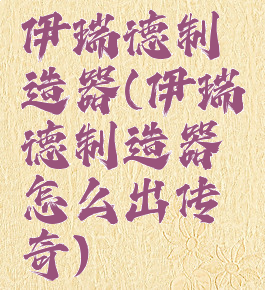 伊瑞德制
造器(伊瑞
德制造器
怎么出传
奇)